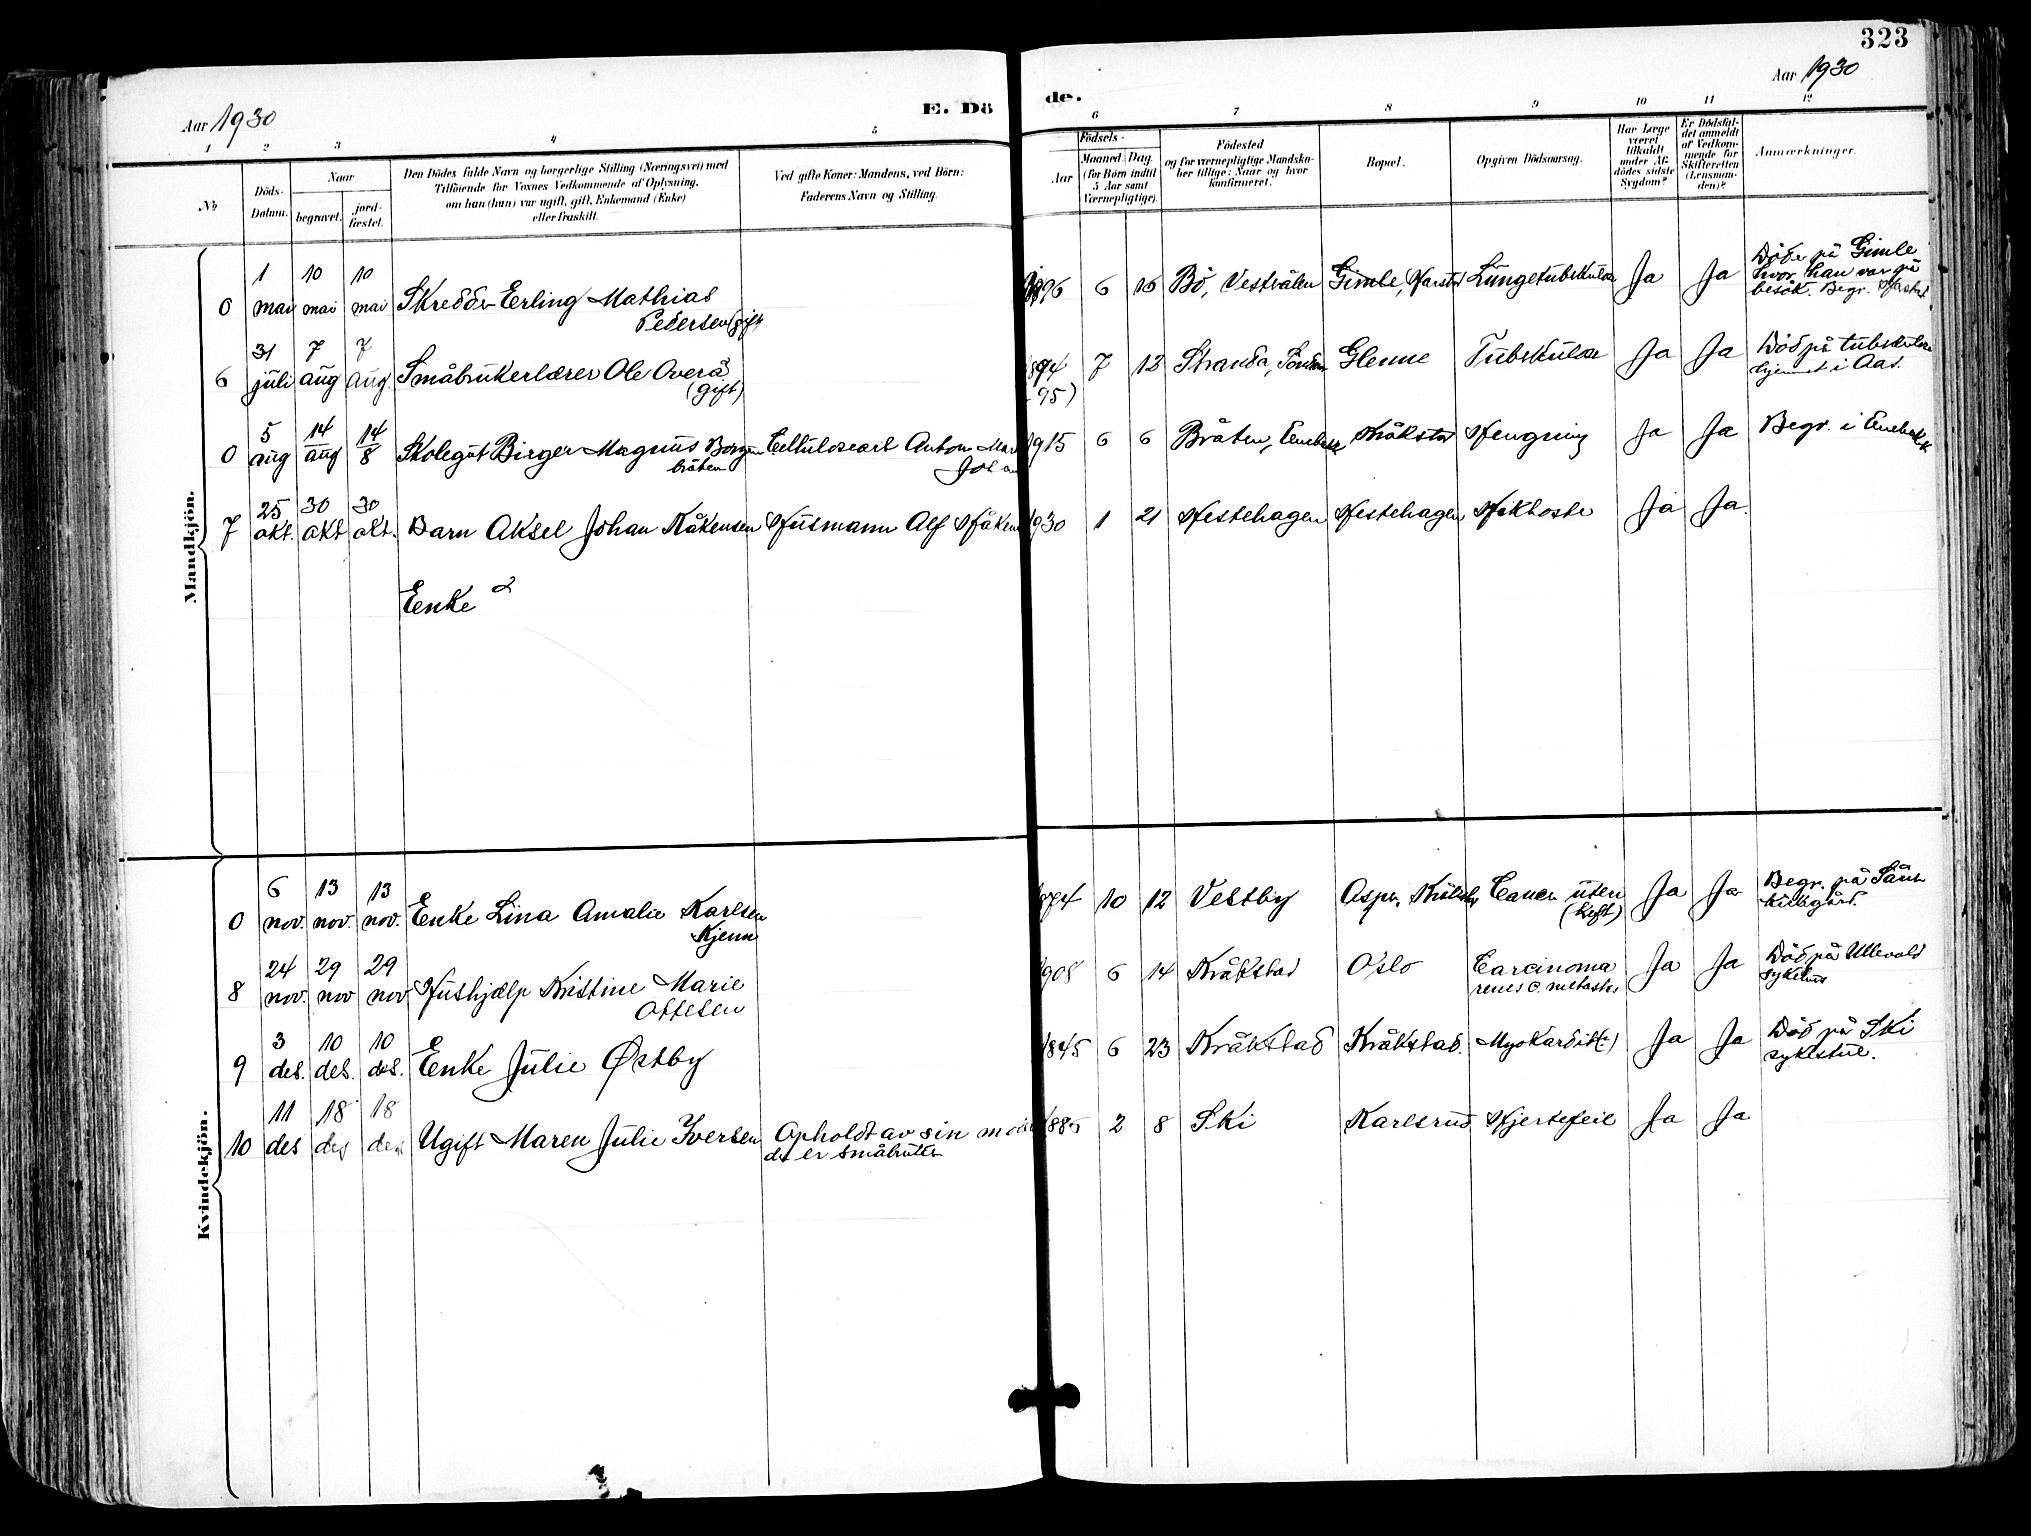 323
Aar 1930
Aar 1930
E. Dö
de.
1 2 3 4 5
6 7 8 9 10 11 12
No
Döds-
Datum.
Naar
begravet.
jord-
fæstet.
Den Dödes fulde Navn og borgerlige Stilling (Næringsvei) med
Tilföiende for Voxnes Vedkommende af Oplysning,
om han (hun) var ugift, gift, Enkemand (Enke)
eller fraskilt.
Ved gifte Koner: Mandens, ved Börn:
Faderens Navn og Stilling.
Födsels-
Aar
Maaned. Dag.
(for Börn indtil
5 Aar samt
Værnepligtige).
Födested
og for værnepligtige Mandska-
ber tillige: Naar og hvor
konfirmeret.
Bopæl.
Opgiven Dödsaarsag.
Har Læge
været
tilkaldt
under Af-
dödes sidste
Sygdom?
Er Dödsfal-
det anmeldt
af Vedkom-
mende for
Skifteretten
(Lensman-
den)?
Anmærkninger.
Mandkjön.
0 1 mai 10 mai 10 mai Skredder Erling Mathias
Pedersen (gift
1896 6 Bö, Vesterålen Gimle, Lungetuberkulose Ja Ja Död på Gimle
hvor han var på
besök. Begr.
6 31 juli 7 aug 7 aug. Småbrukerlærer Ole Overå
(gift)
7 12 Stranda, Glenne Tuberkulose Ja Ja Död på tuberkulose
hjemmet i Aas.
95)
0 5 aug 14 aug 14/8 Skolegut Birger Magnus Borgen
bråten
Cellulosearb. Anton
1915 6 6 Bråten, Enebakk Kråkstad Hengning Ja Ja Begr. i Enebakk
7 25 okt. 30 okt 30 okt. Barn Aksel Johan Håkensen Husmann Alf Håken
1930 1 21 Hestehagen Hestehagen Kikhoste Ja Ja.
Enke
Kvindekjön.
0 6 nov. 13 nov. 13 nov. Enke Lina Amalie Karlsen
Kjenn
1874 10 12 Vestby Cancer uteri Ja Ja Begr. på
kirkegård.
(kreft)
8 24 nov. 29 nov 29 nov Hushjælp Kristine Marie
Ottesen
1908 6 14 Kråkstad Oslo Carcinoma Ja Ja Död på Ullevold
renes c. metastas sykehus
9 3 des. 10 des. 10 des. Enke Julie Østby
1845 6 23 Kråkstad Kråkstad. Myokardit(-) Ja Ja Död på Ski
sykestue.
10 11 des 18 des 18 des Ugift Maren Julie Iversen Opholdt av sin
der er småbruker
1885 2 8 Ski Karlsrud Hjertefeil Ja Ja